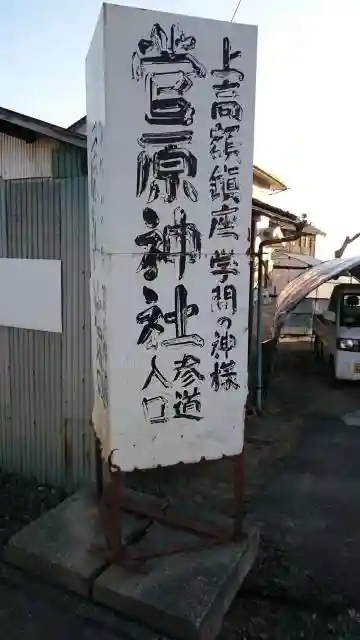 上高額鎮座 学問の神様
菅原神社
参道
入口